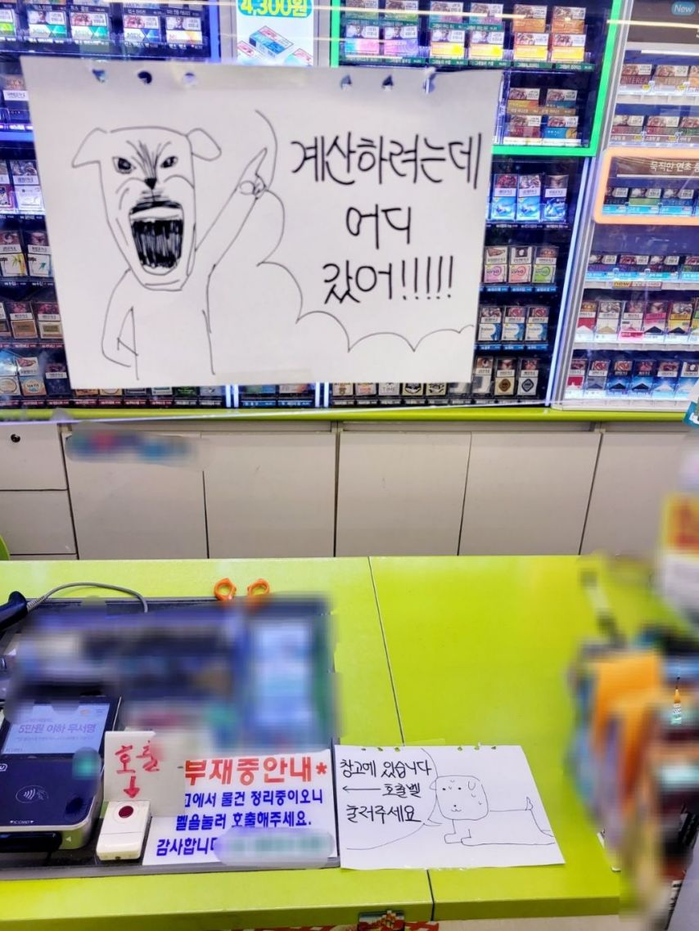 4,300원
계산하려는데
어디
갔어!!!!!
5만원 이하 무서명
호출
부재중안내*
고에서 물건 정리중이오니
벨을눌러 호출해주세요.
감사합니다
창고에 있습니다
← 호출벨
눌러주세요